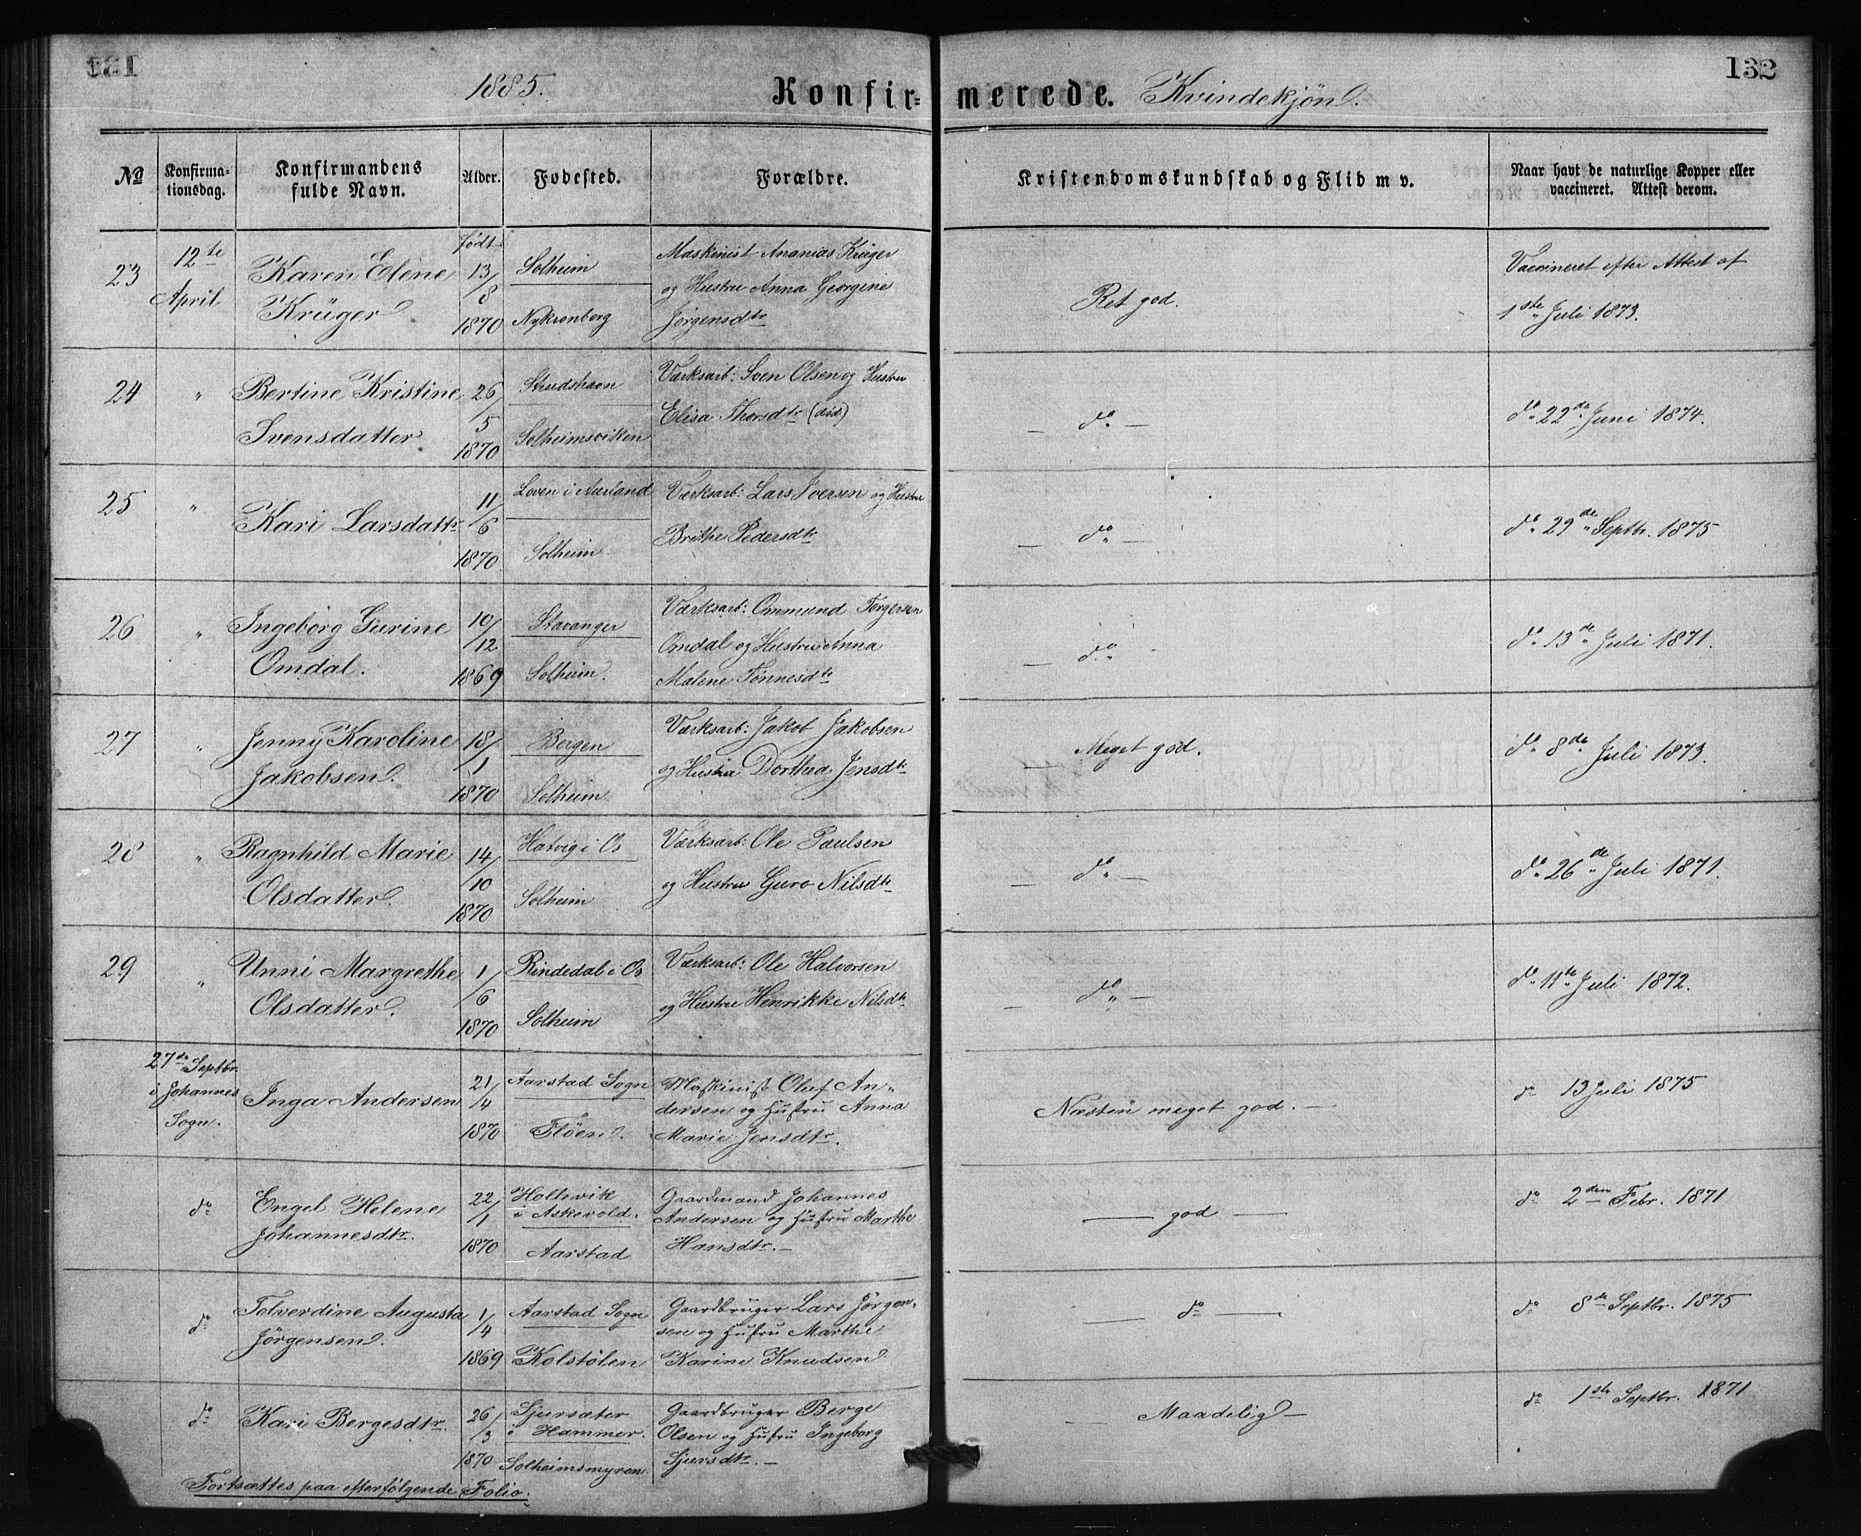 1885. Konfir- merede. Kvindekjøn. 132
No Konfirma- Konfirmandens Alder. Fødested. Forældre. Kristendomskundskab og Flid m v. Naar havt de naturlige Kopper eller
tionsdag. fulde Navn. vaccineret. Attest derom.
23 12te April Karen Eline Krüger Født 13/8 1870 Solheim Nykronborg
Maskinist Ananias Krüger
og Hustru Anna Georgine
Jørgensdtr
Ret god.
Vaccineret efter Attest af
1ste Juli 1873.
24 " Bertine Kristine Svensdatter 26/5 1870 Strudshavn Solheimsviken
Værksarb: Sven Olsen og Hustru
Elisa Thorsdtr (død)
— do —
do 22de Juni 1874.
25 " Kari Larsdattr 11/6 1870 Loven i Aurland Solheim
Værksarb: Lars Iversen og Hustru
Brithe Pedersdtr
— do —
do 29de Septbr. 1875
26 " Ingeborg Gurine Omdal. 10/12 1869 Stavanger Solheim.
Værksarb: Ommund Torgersen
Omdal og Hustru Anna
Malene Tønnesdtr
— do
do 13de Juli 1871.
27 " Jenny Karoline Jakobsen. 18/1 1870 Bergen Solheim
Værksarb: Jakob Jakobsen
og Hustru Dorthea Jensdtr
— Meget god.
do 8de Juli 1873.
28 " Ragnhild Marie Olsdatter. 14/10 1870 Hatvig i Os Solheim
Værksarb: Ole Paulsen
og Hustru Guro Nilsdtr
— do —
do 26de Juli 1871.
29 " Unni Margrethe Olsdatter. 1/6 1870 Rindedal i Os Solheim
Værksarb: Ole Halvorsen
og Hustru Henrikke Nilsdtr
— do —
do 11te Juli 1872.
27de Septbr. i Johannes Sogn. Inga Andersen 21/4 1870 Aarstad Sogn Fløen.
Maskinist Oluf An-
dersen og Hustru Anna
Marie Jensdtr.
Næsten meget god. —
do 13 Juli 1875
do Engel Helene Johannesdtr. 22/1 1870 Holtevik i Askevold. Aarstad
Gaardmand Johannes
Andersen og Hustru Marthe
Hansdtr. —
— god —
do 2den Febr. 1871
do Tolverdine Augusta Jørgensen. 1/4 1869 Aarstad Sogn Kolstølen
Gaardbruger Lars Jørgen-
sen og Hustru Marthe
Karine Knudsen.
— do —
do 8de Septbr. 1875
do Kari Bergesdtr. 26/3 1870 Sjursæter i Hammer. Solheimsmyren
Gaardbruger Berge
Olsen og Hustru Ingeborg
Sjursdtr. —
— Maadelig —
do 1ste Septbr. 1871
Fortsættes paa efterfølgende Folio.